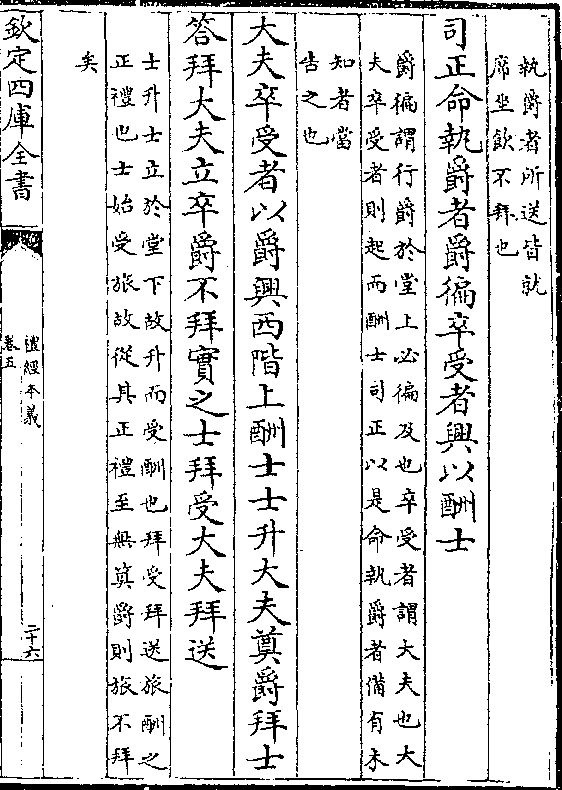 執爵者所送皆就
席坐飲不拜也
司正命執爵者爵徧卒受者興以酬士
爵徧謂行爵於堂上必徧及也卒受者謂大夫也大
夫卒受者則起而酬士司正以是命執爵者備有未
知者當
告之也
大夫卒受者以爵興西階上酬士士升大夫奠爵拜士
答拜大夫立卒爵不拜實之士拜受大夫拜送
士升士立於堂下故升而受酬也拜受拜送旅酬之
正禮也士始受旅故從其正禮至無筭爵則旅不拜
矣
欽定四庫全書
禮經本義
卷五
二十六